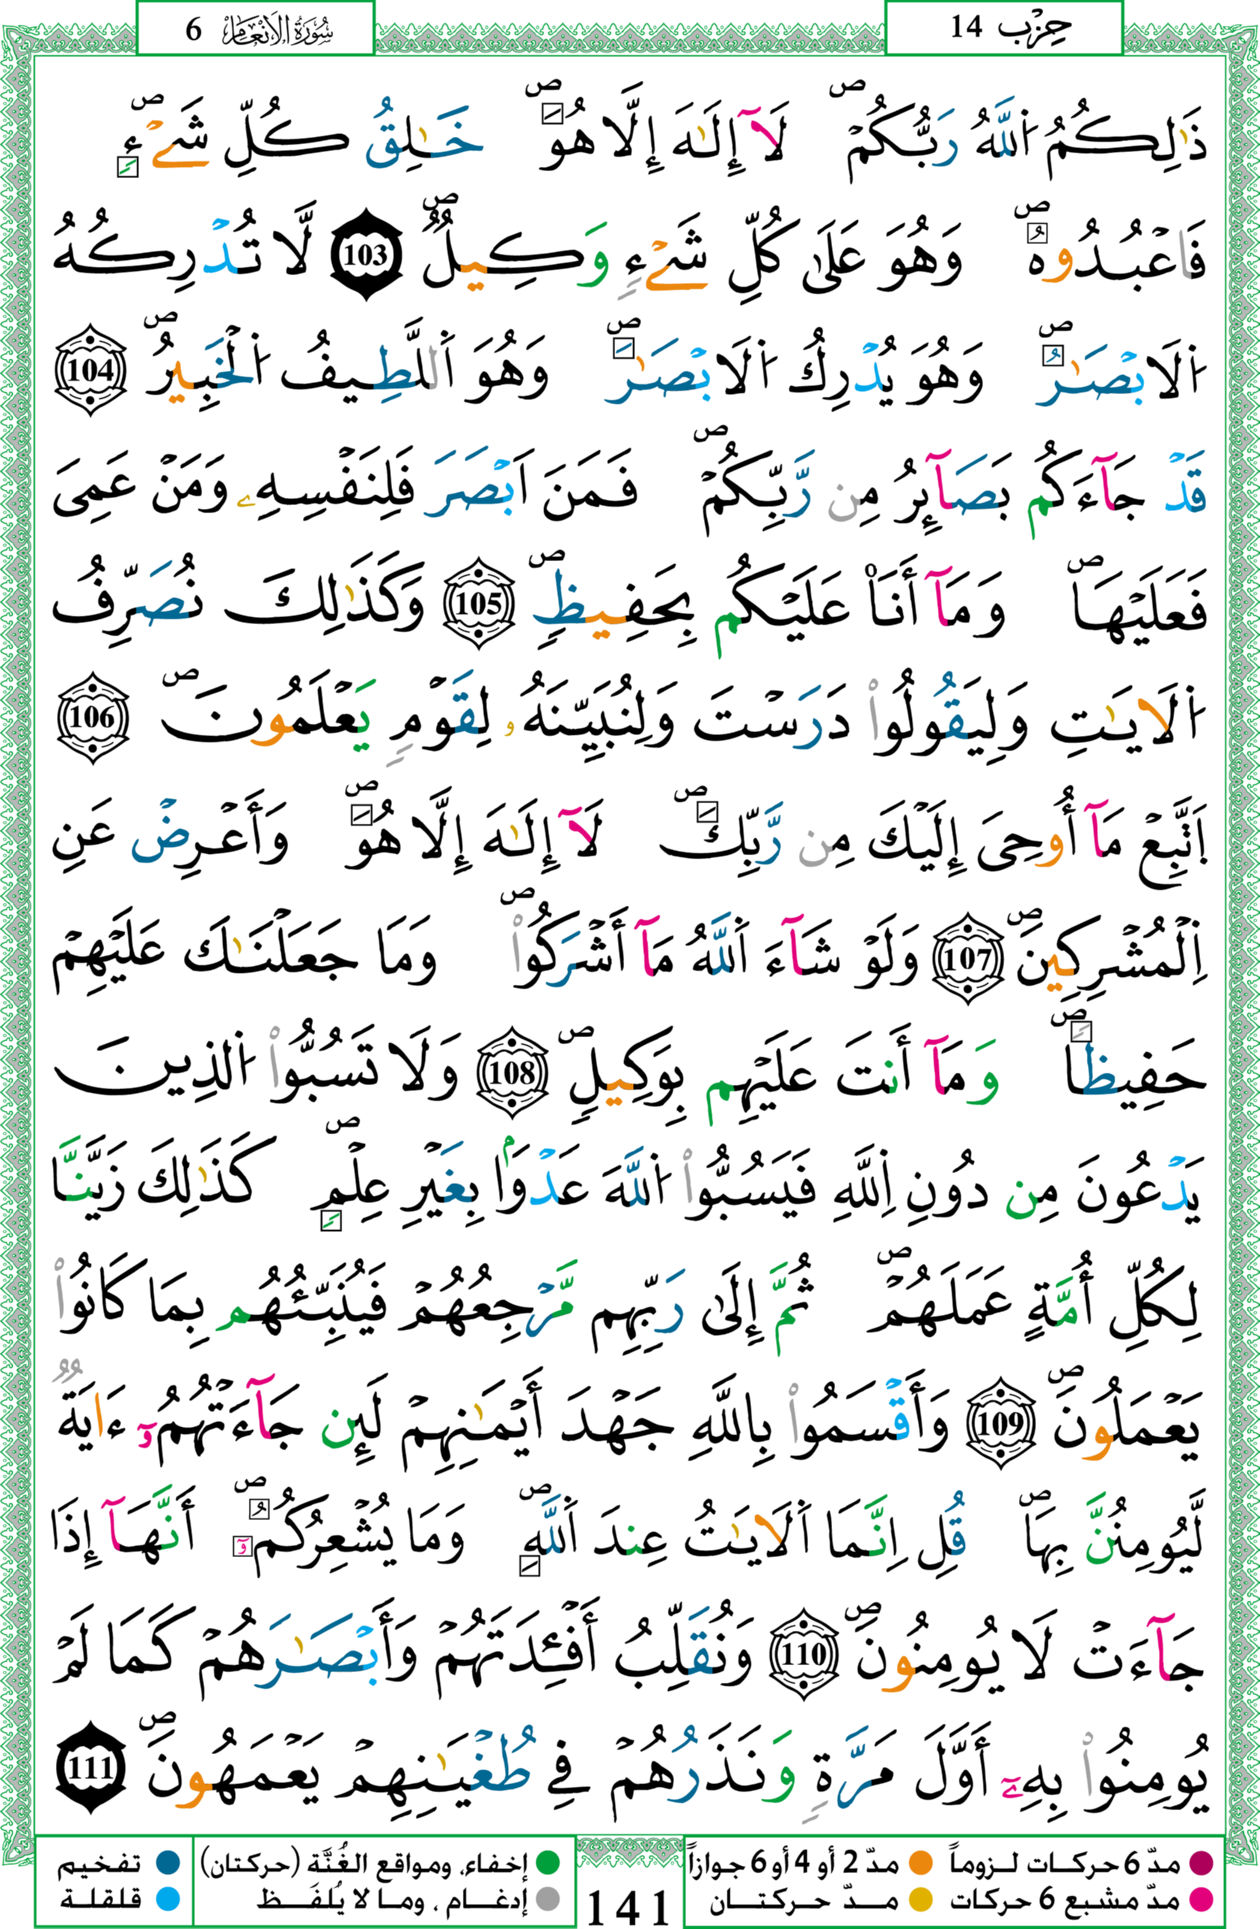 سُورَةُ الأَنْعَام 6
حِزْب 14
ذَٰلِكُمُ اُ۬للَّهُ رَبُّكُمْ لَآ إِلَٰهَ إِلَّا هُوَ خَٰلِقُ كُلِّ شَےْءٖ
فَاعْبُدُوهُ وَهُوَ عَلَىٰ كُلِّ شَےْءٖ وَكِيلٞ 103 لَّا تُدْرِكُهُ
اُ۬لَابْصَٰرُ وَهُوَ يُدْرِكُ اُ۬لَابْصَٰرَ وَهُوَ اَ۬للَّطِيفُ اُ۬لْخَبِيرُ 104
قَدْ جَآءَكُم بَصَآئِرُ مِن رَّبِّكُمْ فَمَنَ اَبْصَرَ فَلِنَفْسِهِۦ وَمَنْ عَمِىَ
فَعَلَيْهَا وَمَآ أَنَا۠ عَلَيْكُم بِحَفِيظٖ 105 وَكَذَٰلِكَ نُصَرِّفُ
اُ۬لَايَٰتِ وَلِيَقُولُوا۟ دَرَسْتَ وَلِنُبَيِّنَهُۥ لِقَوْمٖ يَعْلَمُونَ 106
اَ۪تَّبِعْ مَآ أُوحِىَ إِلَيْكَ مِن رَّبِّكَ لَآ إِلَٰهَ إِلَّا هُوَ وَأَعْرِضْ عَنِ
اِ۬لْمُشْرِكِينَ 107 وَلَوْ شَآءَ اَ۬للَّهُ مَآ أَشْرَكُوا۟ وَمَا جَعَلْنَٰكَ عَلَيْهِمْ
حَفِيظاٗ وَمَآ أَنتَ عَلَيْهِم بِوَكِيلٖ 108 وَلَا تَسُبُّوا۟ اُ۬لذِينَ
يَدْعُونَ مِن دُونِ اِ۬للَّهِ فَيَسُبُّوا۟ اُ۬للَّهَ عَدْوَۢا بِغَيْرِ عِلْمٖ كَذَٰلِكَ زَيَّنَّا
لِكُلِّ أُمَّةٍ عَمَلَهُمْ ثُمَّ إِلَىٰ رَبِّهِم مَّرْجِعُهُمْ فَيُنَبِّئُهُم بِمَا كَانُوا۟
يَعْمَلُونَ 109 وَأَقْسَمُوا۟ بِاللَّهِ جَهْدَ أَيْمَٰنِهِمْ لَئِن جَآءَتْهُمُۥٓ ءَايَةٞ
لَّيُومِنُنَّ بِهَا قُلِ اِنَّمَا اَ۬لَايَٰتُ عِندَ اَ۬للَّهِ وَمَا يُشْعِرُكُمُۥٓ أَنَّهَآ إِذَا
جَآءَتْ لَا يُومِنُونَ 110 وَنُقَلِّبُ أَفْـِٔدَتَهُمْ وَأَبْصَٰرَهُمْ كَمَا لَمْ
يُومِنُوا۟ بِهِۦٓ أَوَّلَ مَرَّةٖ وَنَذَرُهُمْ فِے طُغْيَٰنِهِمْ يَعْمَهُونَ 111
مدّ 6 حركات لـزوماً مدّ 2 أو 4 أو 6 جوازاً
مدّ مشبع 6 حركات مـدّ حـركتـان
141
إخفاء، ومواقع الغُنَّة (حركتان) تفخيم
إدغـام ، ومـا لا يُلفَـظ قلقلة